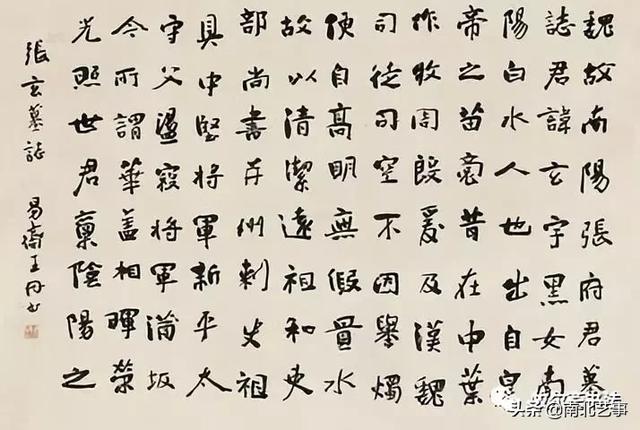 魏故南陽張府君墓
誌君諱玄字黑女南
陽白水人也出自皇
帝之苗裔昔在中葉
作牧周殷爰及漢魏
司徒司空不因舉燭
便自高明無假置水
故以清潔遠祖和吏
部尚書并州刺史祖
具中堅將軍新平太
守父盪寇將軍蒲坂
令所謂華蓋相暉榮
光照世君稟陰陽之
張玄墓誌 易齋王丹书
头条@南北艺事